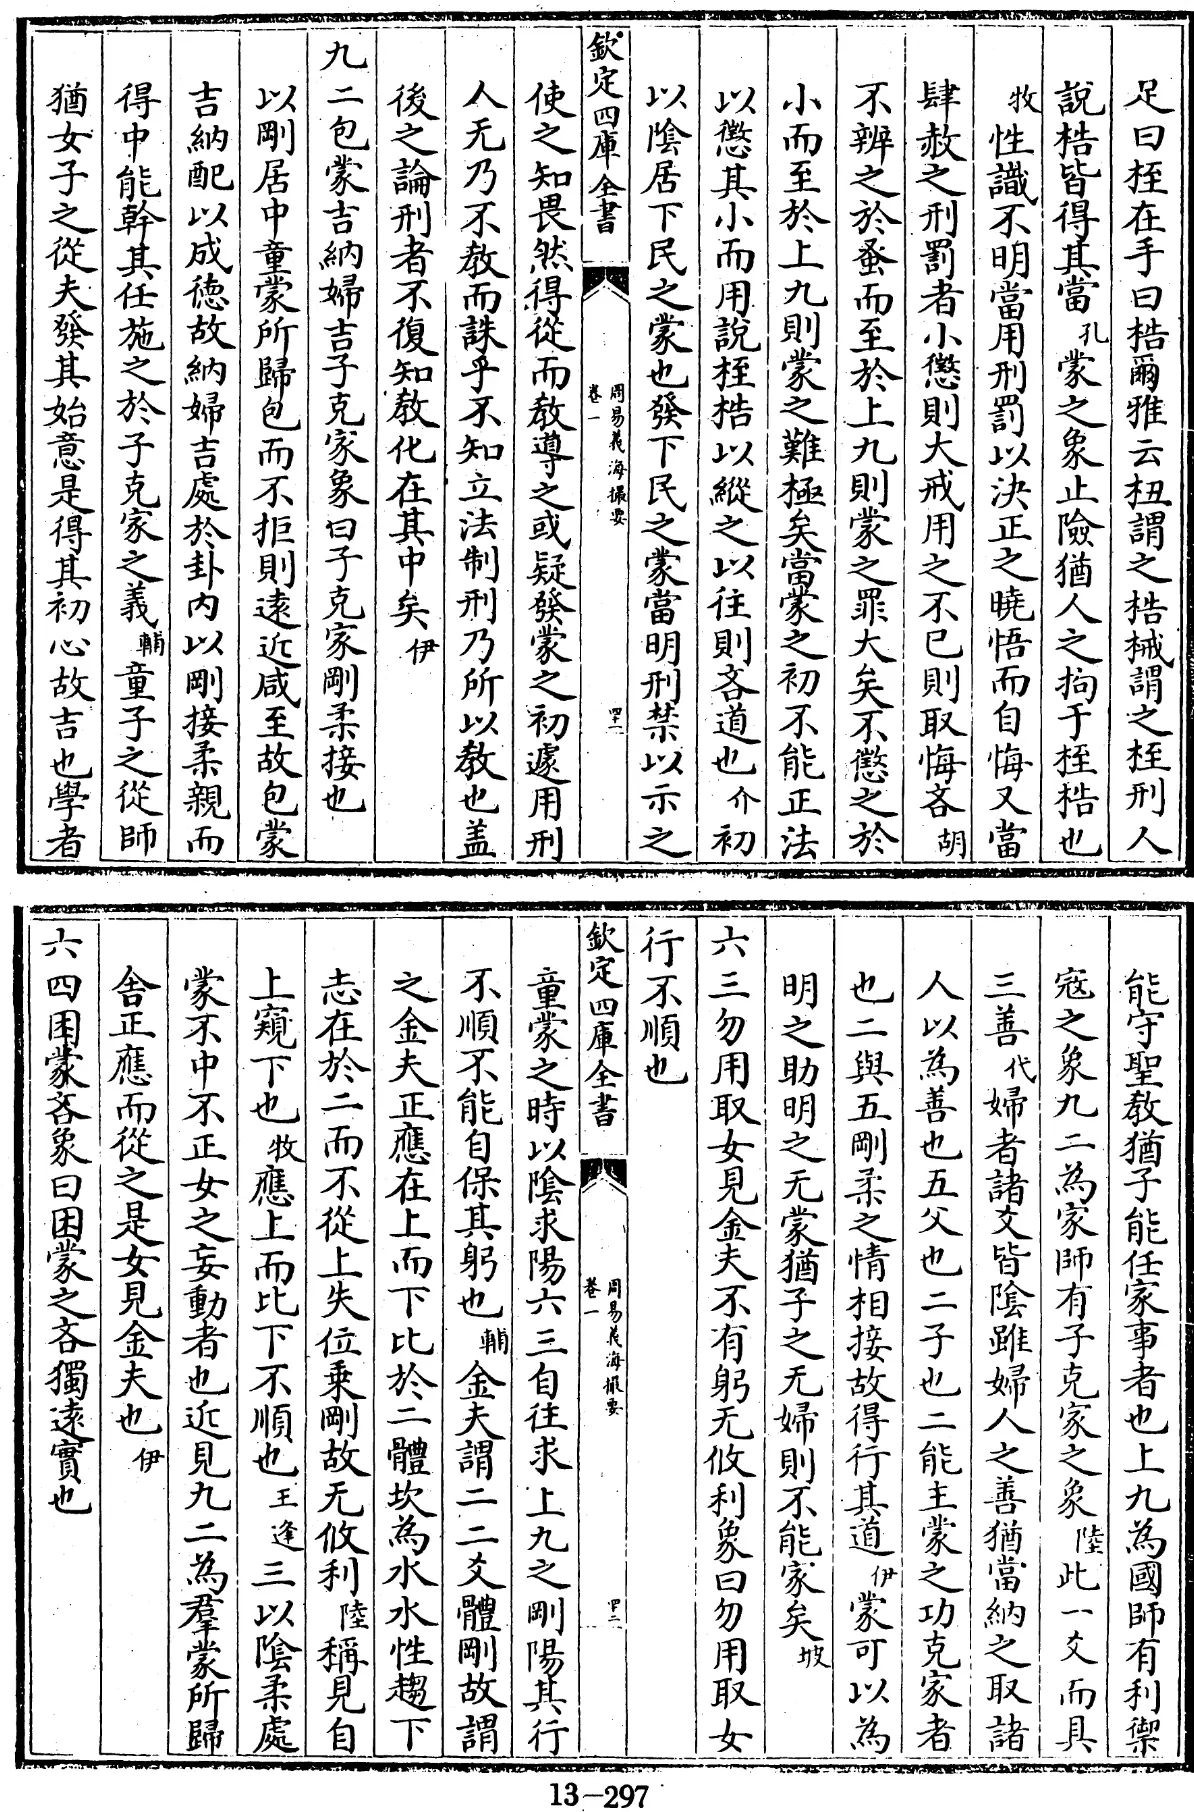 足曰桎在手曰梏爾雅云杻謂之梏械謂之桎刑人
說梏皆得其當孔蒙之象止險猶人之拘于桎梏也
牧性識不明當用刑罰以決正之曉悟而自悔又當
肆赦之刑罰者小懲則大戒用之不已則取悔吝胡
不辨之於蚤而至於上九則蒙之罪大矣不懲之於
小而至於上九則蒙之難極矣當蒙之初不能正法
以懲其小而用說桎梏以縱之以往則吝道也介初
以陰居下民之蒙也發下民之蒙當明刑禁以示之
欽定四庫全書
周易義海撮要
卷一
四十一
使之知畏然得從而教導之或疑發蒙之初遽用刑
人无乃不教而誅乎不知立法制刑乃所以教也盖
後之論刑者不復知教化在其中矣伊
九二包蒙吉納婦吉子克家象曰子克家剛柔接也
以剛居中童蒙所歸包而不拒則遠近咸至故包蒙
吉納配以成德故納婦吉處於卦内以剛接柔親而
得中能幹其任施之於子克家之義輔童子之從師
猶女子之從夫發其始意是得其初心故吉也學者
能守聖教猶子能任家事者也上九為國師有利禦
寇之象九二為家師有子克家之象陸此一爻而具
三善代婦者諸爻皆陰雖婦人之善猶當納之取諸
人以為善也五父也二子也二能主蒙之功克家者
也二與五剛柔之情相接故得行其道伊蒙可以為
明之助明之无蒙猶子之无婦則不能家矣坡
六三勿用取女見金夫不有躬无攸利象曰勿用取女
行不順也
欽定四庫全書
周易義海撮要
卷一
四十二
童蒙之時以陰求陽六三自往求上九之剛陽其行
不順不能自保其躬也輔金夫謂二二爻體剛故謂
之金夫正應在上而下比於二體坎為水水性趨下
志在於二而不從上失位乗剛故无攸利陸稱見自
上窺下也牧應上而比下不順也王逢三以陰柔處
蒙不中不正女之妄動者也近見九二為羣蒙所歸
舍正應而從之是女見金夫也伊
六四困蒙吝象曰困蒙之吝獨遠實也
13-297